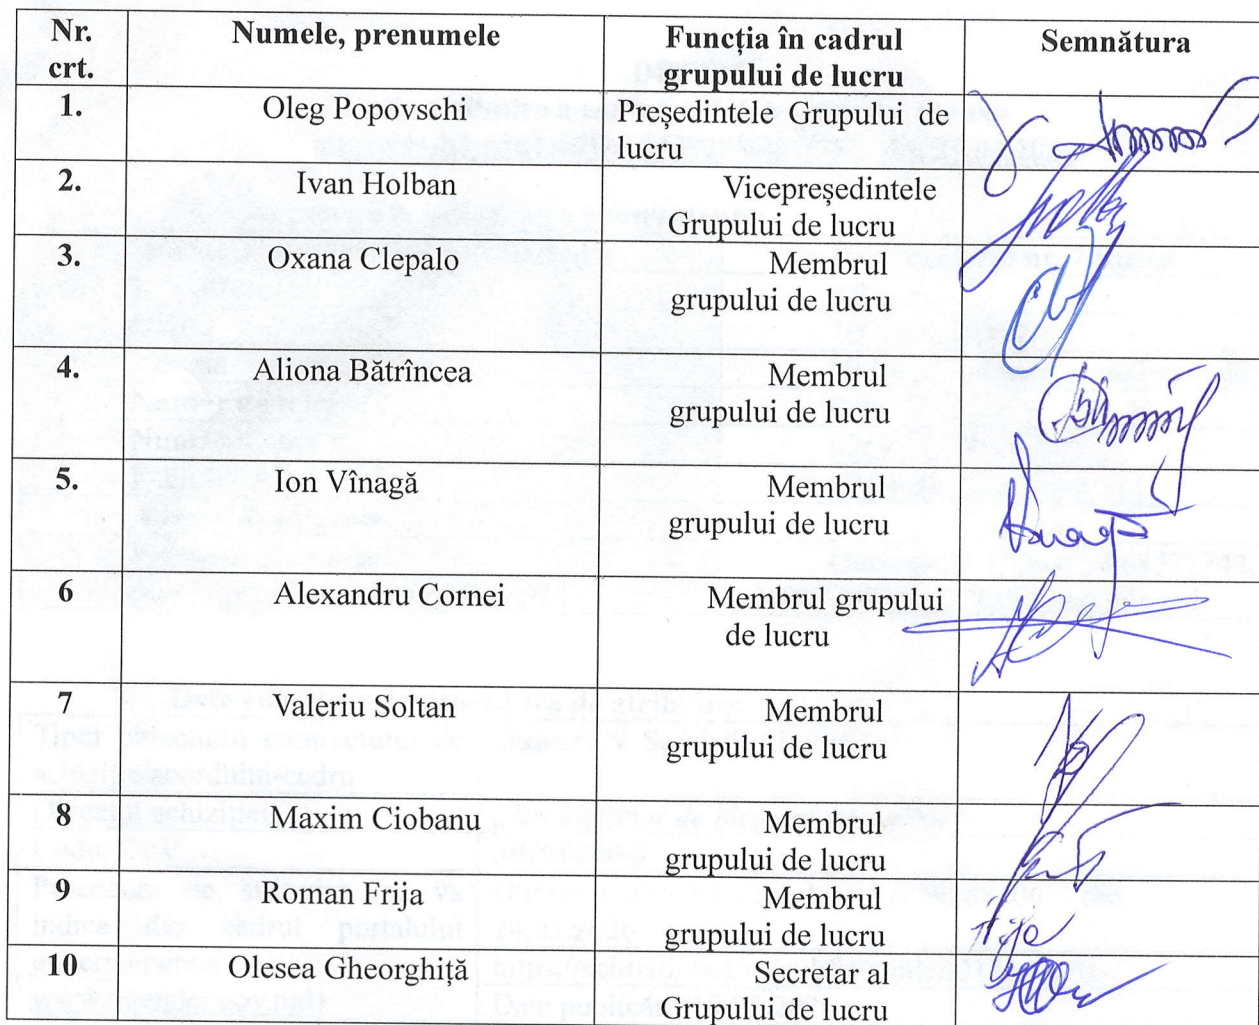 Nr. crt. Numele, prenumele Funcția în cadrul grupului de lucru Semnătura
1. Oleg Popovschi Președintele Grupului de lucru
2. Ivan Holban Vicepreședintele Grupului de lucru
3. Oxana Clepalo Membrul grupului de lucru
4. Aliona Bătrîncea Membrul grupului de lucru
5. Ion Vînagă Membrul grupului de lucru
6 Alexandru Cornei Membrul grupului de lucru
7 Valeriu Soltan Membrul grupului de lucru
8 Maxim Ciobanu Membrul grupului de lucru
9 Roman Frija Membrul grupului de lucru
10 Olesea Gheorghiță Secretar al Grupului de lucru